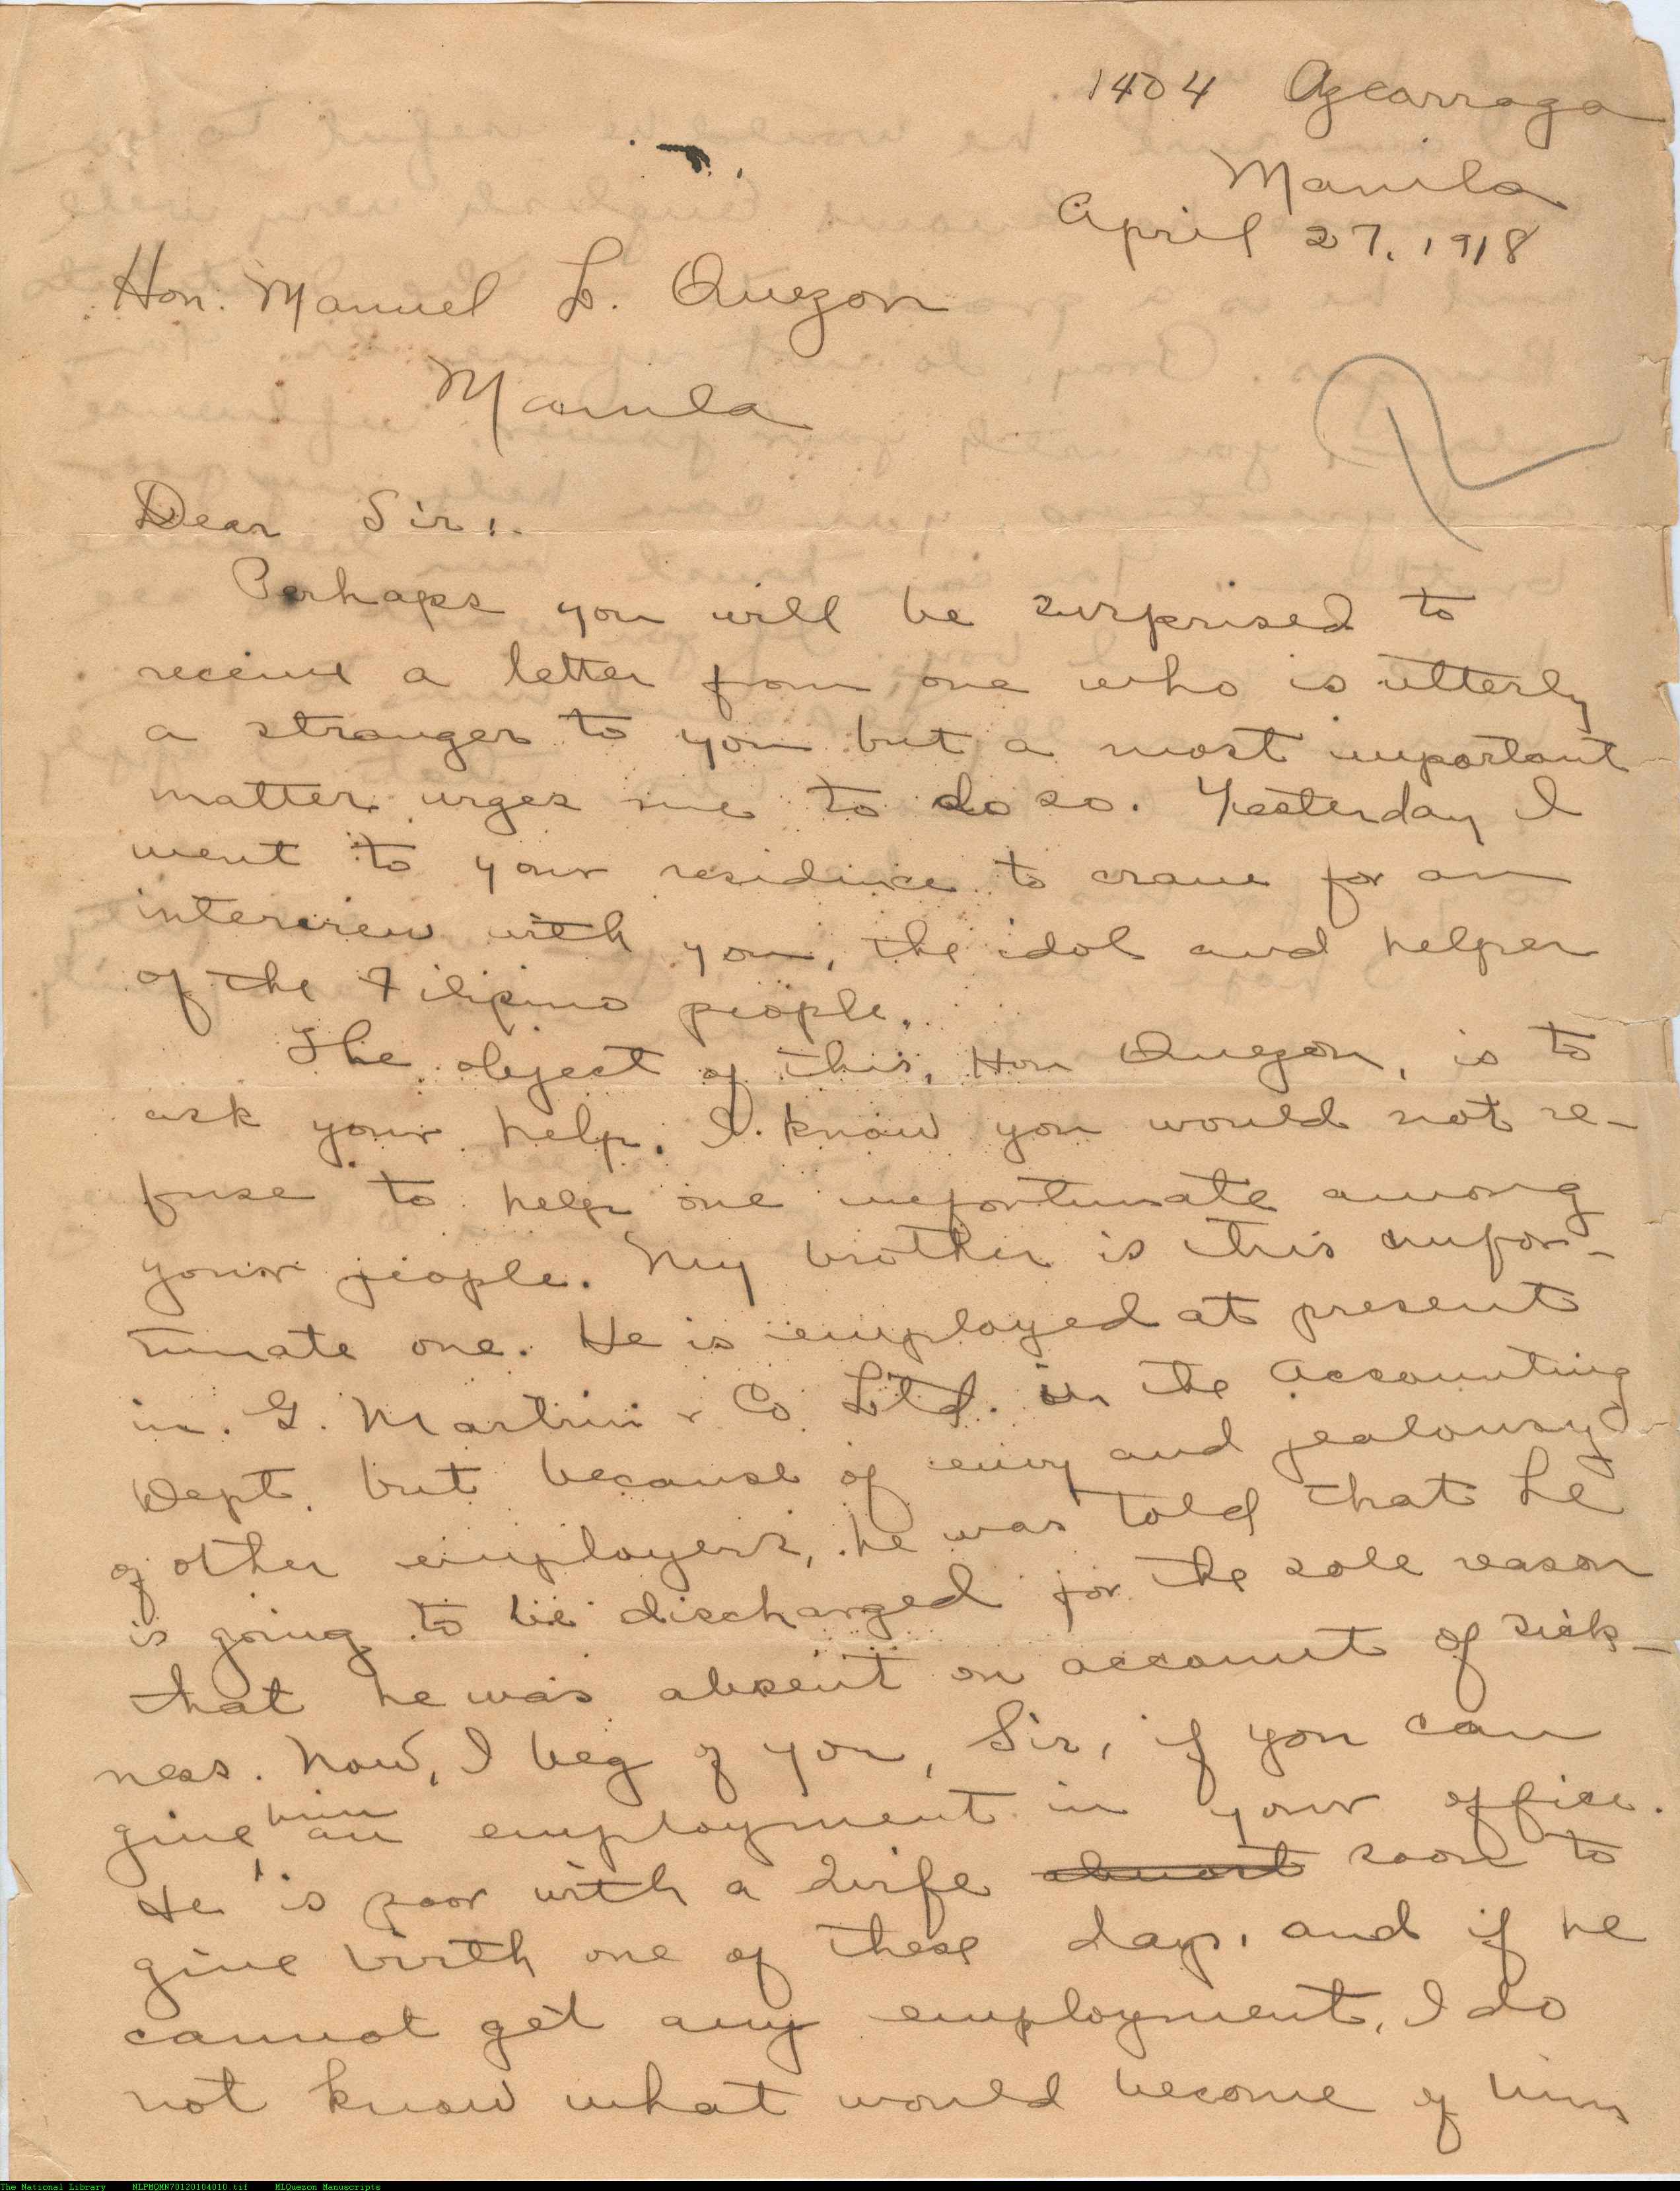 1404 Azcarraga
Manila
April 27, 1918
Hon. Manuel L. Quezon
Manila
Dear Sir:-
Perhaps you will be surprised to
receive a letter from one who is utterly
a stranger to you but a most important
matter urges me to do so. Yesterday I
went to your residence to crave for an
interview with you, the idol and helper
of the Filipino people.
The object of this, Hon Quezon, is to
ask your help. I know you would not re-
fuse to help one unfortunate among
your people. My brother is this unfor-
tunate one. He is employed at present
in G. Martini & Co Ltd. in the Accounting
Dept. but because of envy and jealousy
of other employers, he was told that he
is going to be discharged for the sole reason
that he was absent on account of sick-
ness. Now, I beg of you, Sir, if you can
give him an employment in your office.
He is poor with a wife almost soon to
give birth one of these days, and if he
cannot get any employment, I do
not know what would become of him
The National Library NLPMQMN70120104010.tif MLQuezon Manuscripts